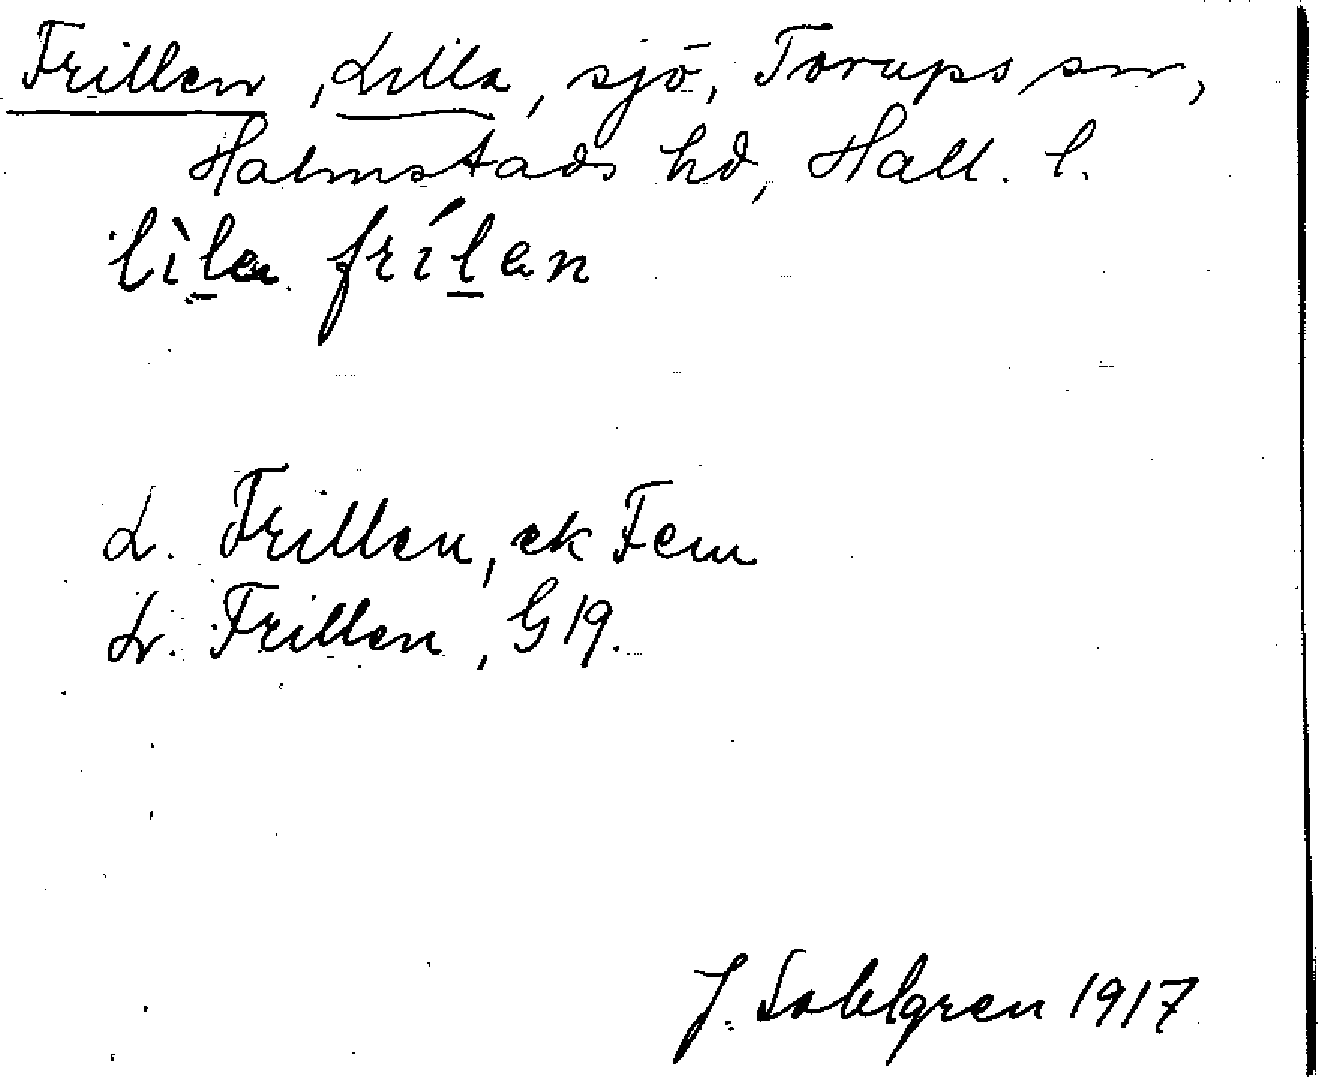 Frillen, Lilla, sjö, Torups sn,
Halmstads hd, Hall. l.
lìla frílan
L. Frillen, ek Fem
L. Frillen, G 19.
J. Sahlgren 1917